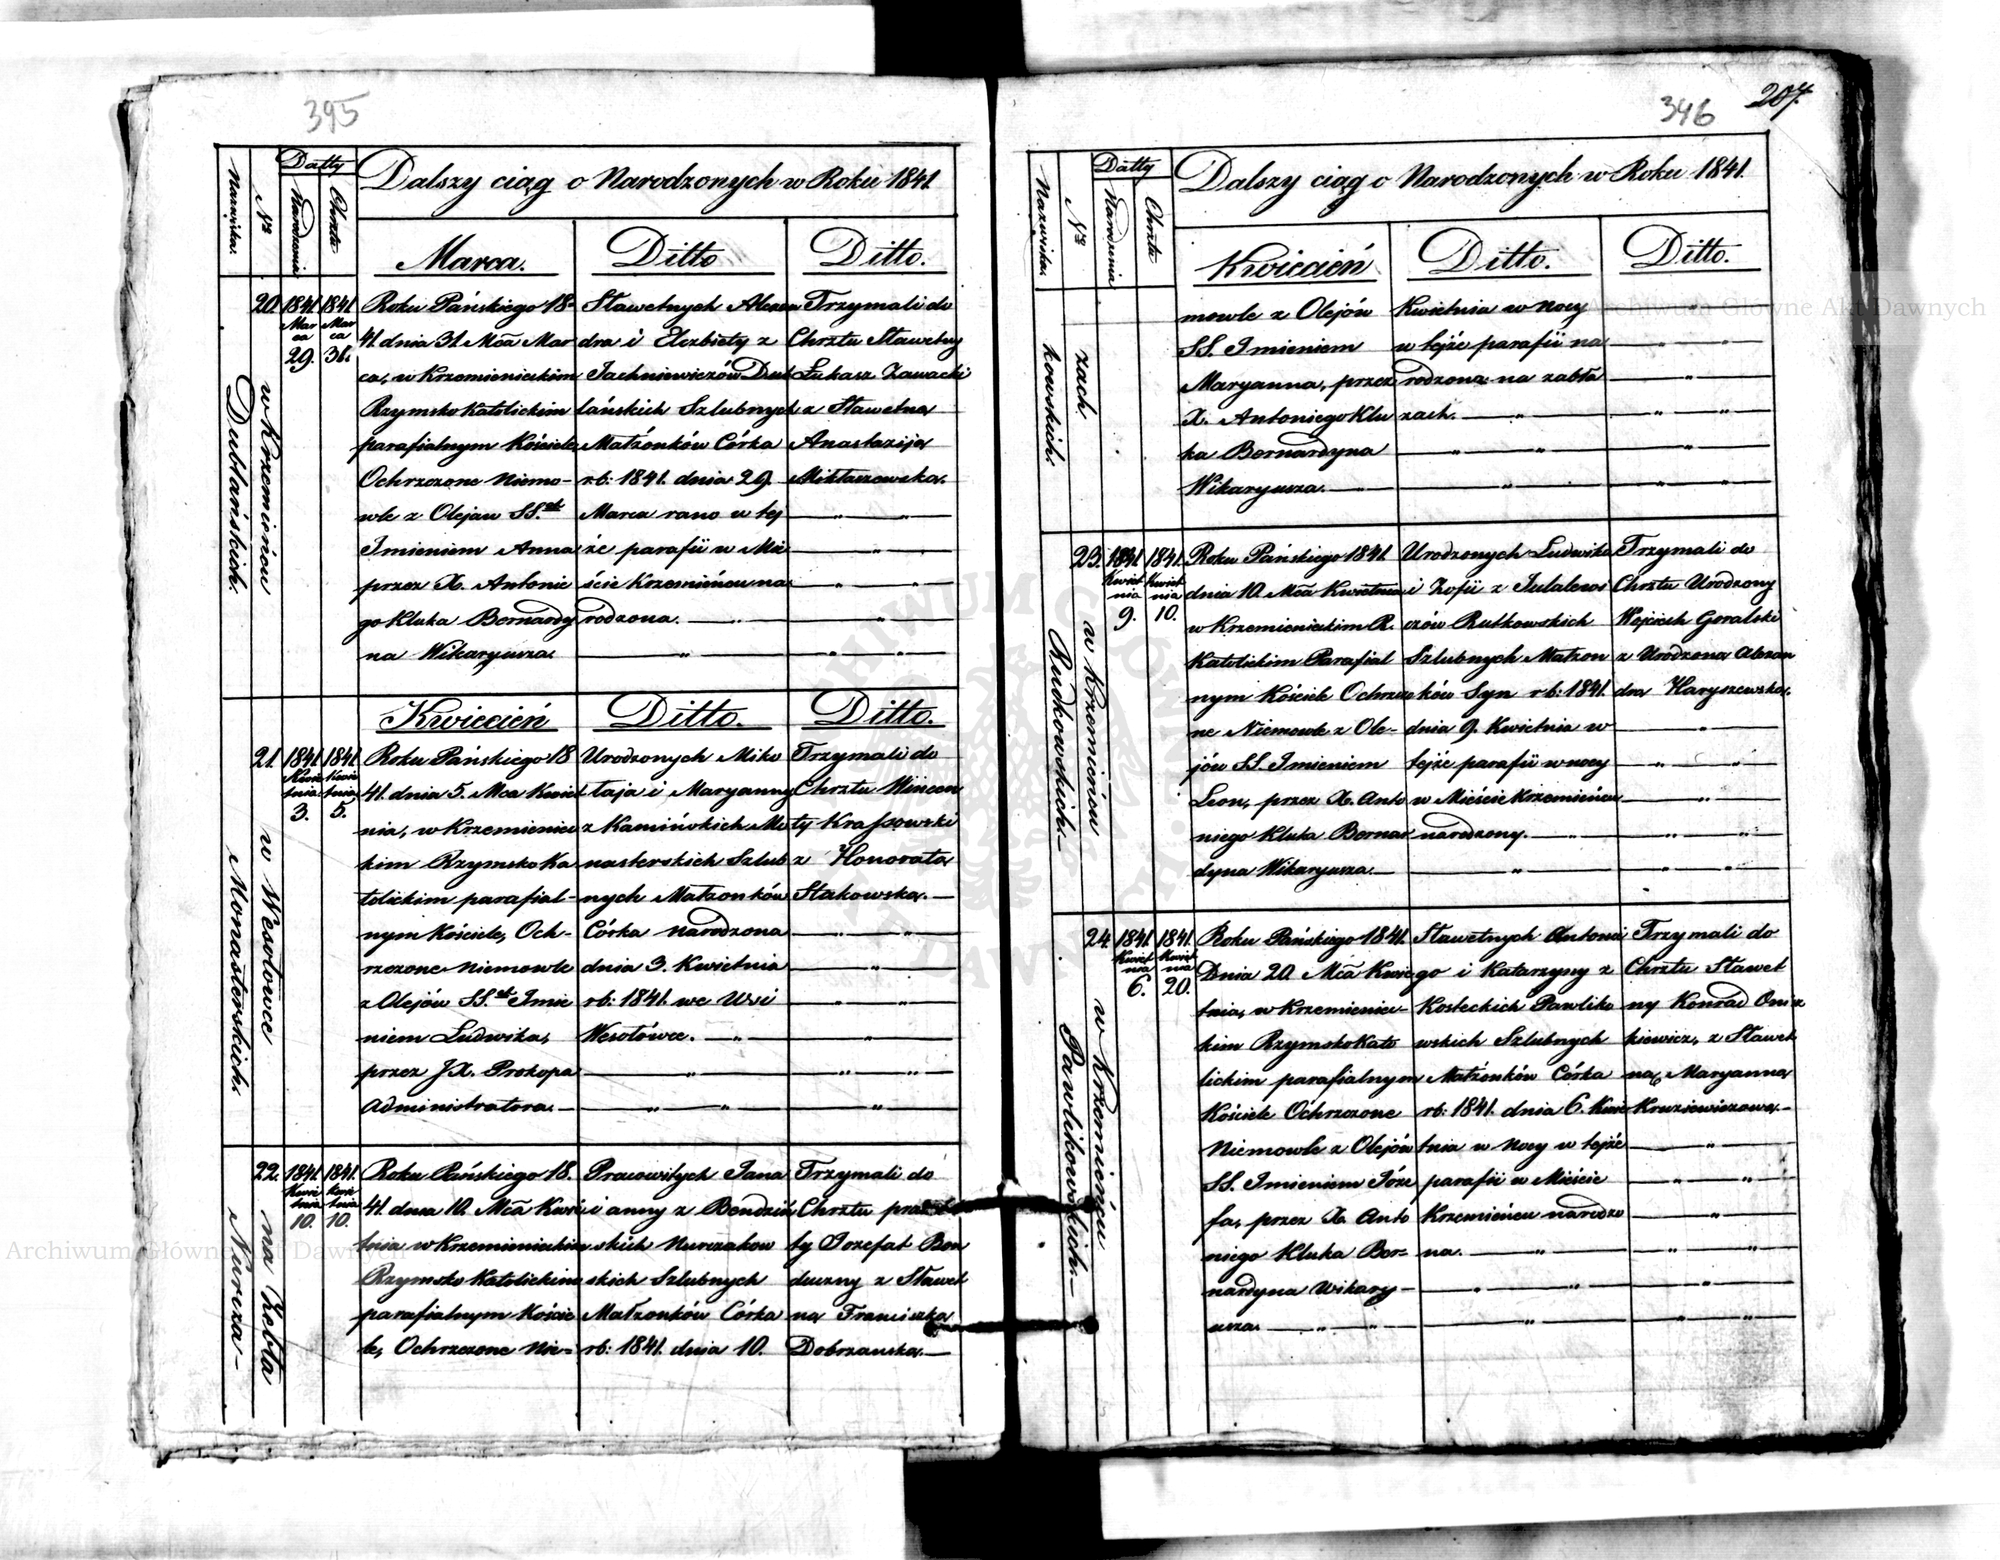 395
Datty
Nazwiska.
Nr
Narodzenia
Chrztu
Dalszy ciąg o Narodzonych w Roku 1841.
Marca.
Ditto
Ditto.
20.
1841.
Marca
29.
1841.
Marca
31.
w Krzemieńcu
Dublańskich.
Roku Pańskiego 18-
41. dnia 31. Mca Mar
ca, w Krzemienieckim
Rzymsko Katolickim
parafialnym Kościele
Ochrzczone Niemo-
wle z Olejau SS.
Imieniem Anna
przez X. Antonie
go Kluka Bernardy
na Wikaryusza.
Sławetnych Alexan
dra i Elzbiety z
Jachniewiczów Dub
lańskich Szlubnych
Małżonków Córka
rb: 1841. dnia 29.
Marca rano w tej
że parafii w Mie
ście Krzemieńcu na
rodzona.
Trzymali do
Chrztu Sławetny
Łukasz Zawacki
z Sławetną
Anastaziją
Mikłaszewską.
Kwiecień
Ditto.
Ditto.
21.
1841.
Kwie
tnia
3.
1841.
Kwie
tnia
5.
w Wesołowce
Monasterskich.
Roku Pańskiego 18
41. dnia 5. Mca Kwiet
nia, w Krzemieniec
kim Rzymsko Ka
tolickim parafial-
nym Kościele, Och-
rzczone Niemowle
z Olejów SS. Imie
niem Ludwika,
przez JX. Prokopa
Administratora.
Urodzonych Miko
łaja i Maryanny
z Kamińskich Mo
nasterskich Szlub
nych Małżonków
Córka Narodzona
dnia 3. Kwietnia
rb: 1841. we Wsi
Wesołówce.
Trzymali do
Chrztu Wincen
ty Krassowski
z Honoratą
Stakowską.
22.
1841.
Kwie
tnia
10.
1841.
Kwie
tnia
10.
na Zabła
Nurcza-
Roku Pańskiego 18.
41. dnia 10. Mca Kwie
tnia w Krzemienieckim
Rzymsko Katolickim
parafialnym Koście
le, Ochrzczone Nie-
Pracowitych Jana
i anny z Bendziń
skich Nurczakow
skich Szlubnych
Małżonków Córka
rb: 1841. dnia 10.
Trzymali do
Chrztu
ty Jozefat Bon
duczny z Sławet
ną Franciszką
Dobrzańską.
346
207.
Datty
Nazwiska.
Nr
Narodzenia
Chrztu
Dalszy ciąg o Narodzonych w Roku 1841.
Kwiecień
Ditto.
Ditto.
zach.
kowskich.
mowle z Olejów
SS. Imieniem
Maryanna, przez
X. Antoniego Klu
ka Bernardyna
Wikaryusza.
Kwietnia w Nocy
w tejże parafii na
rodzona na zabło
zach.
23.
1841.
Kwiet
nia
9.
1841.
Kwiet
nia
10.
w Krzemieńcu
Rudkowskich.
Roku Pańskiego 1841.
dnia 10. Mca Kwietnia
w Krzemienieckim R.
Katolickim Parafial
nym Kościele Ochrzczo
ne Niemowle z Ole-
jów SS. Imieniem
Leon, przez X. Anto
niego Kluka Bernar
dyna Wikaryusza.
Urodzonych Ludwika
i Zofii z Tulalewi
czów Rutkowskich
Szlubnych Małżon
ków Syn rb: 1841.
dnia 9. Kwietnia w
tejże parafii w nocy
w Mieście Krzemieńcu
narodzony.
Trzymali do
Chrztu Urodzony
Wojciech Goralski
z Urodzoną Alexan
drą Haryszewską.
24.
1841.
Kwiet
nia
6.
1841.
Kwiet
nia
20.
w Krzemieńcu
Pawlikowskich.
Roku Pańskiego 1841.
Dnia 20. Mca Kwie
tnia, w Krzemieniec-
kim Rzymsko Kato
lickim parafialnym
Kościele Ochrzczone
Niemowle z Olejów
SS. Imieniem Józe
fa, przez X. Anto
niego Kluka Ber-
nardyna Wikary-
usza.
Sławetnych Antonie
go i Katarzyny z
Kosteckich Pawliko
wskich Szlubnych
Małżonków Córka
rb: 1841. dnia 6. Kwie
tnia w Nocy w tejże
parafii w Mieście
Krzemieńcu narodzo
na.
Trzymali do
Chrztu Sławet
ny Konrad Onisz
kiewicz, z Sławet
ną Maryanną
Kruziewiczową.
Archiwum Główne Akt Dawnych
Archiwum Główne Akt Dawnych
ARCHIWUM GŁÓWNE AKT DAWNYCH